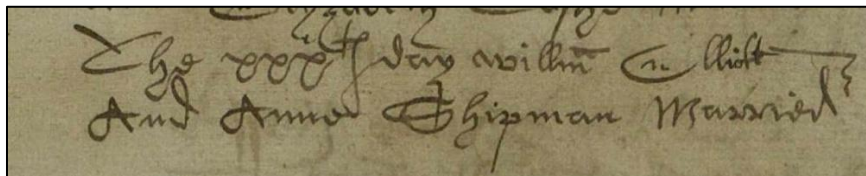 The xxxth day willm Elliott
And Anne Shipman Married